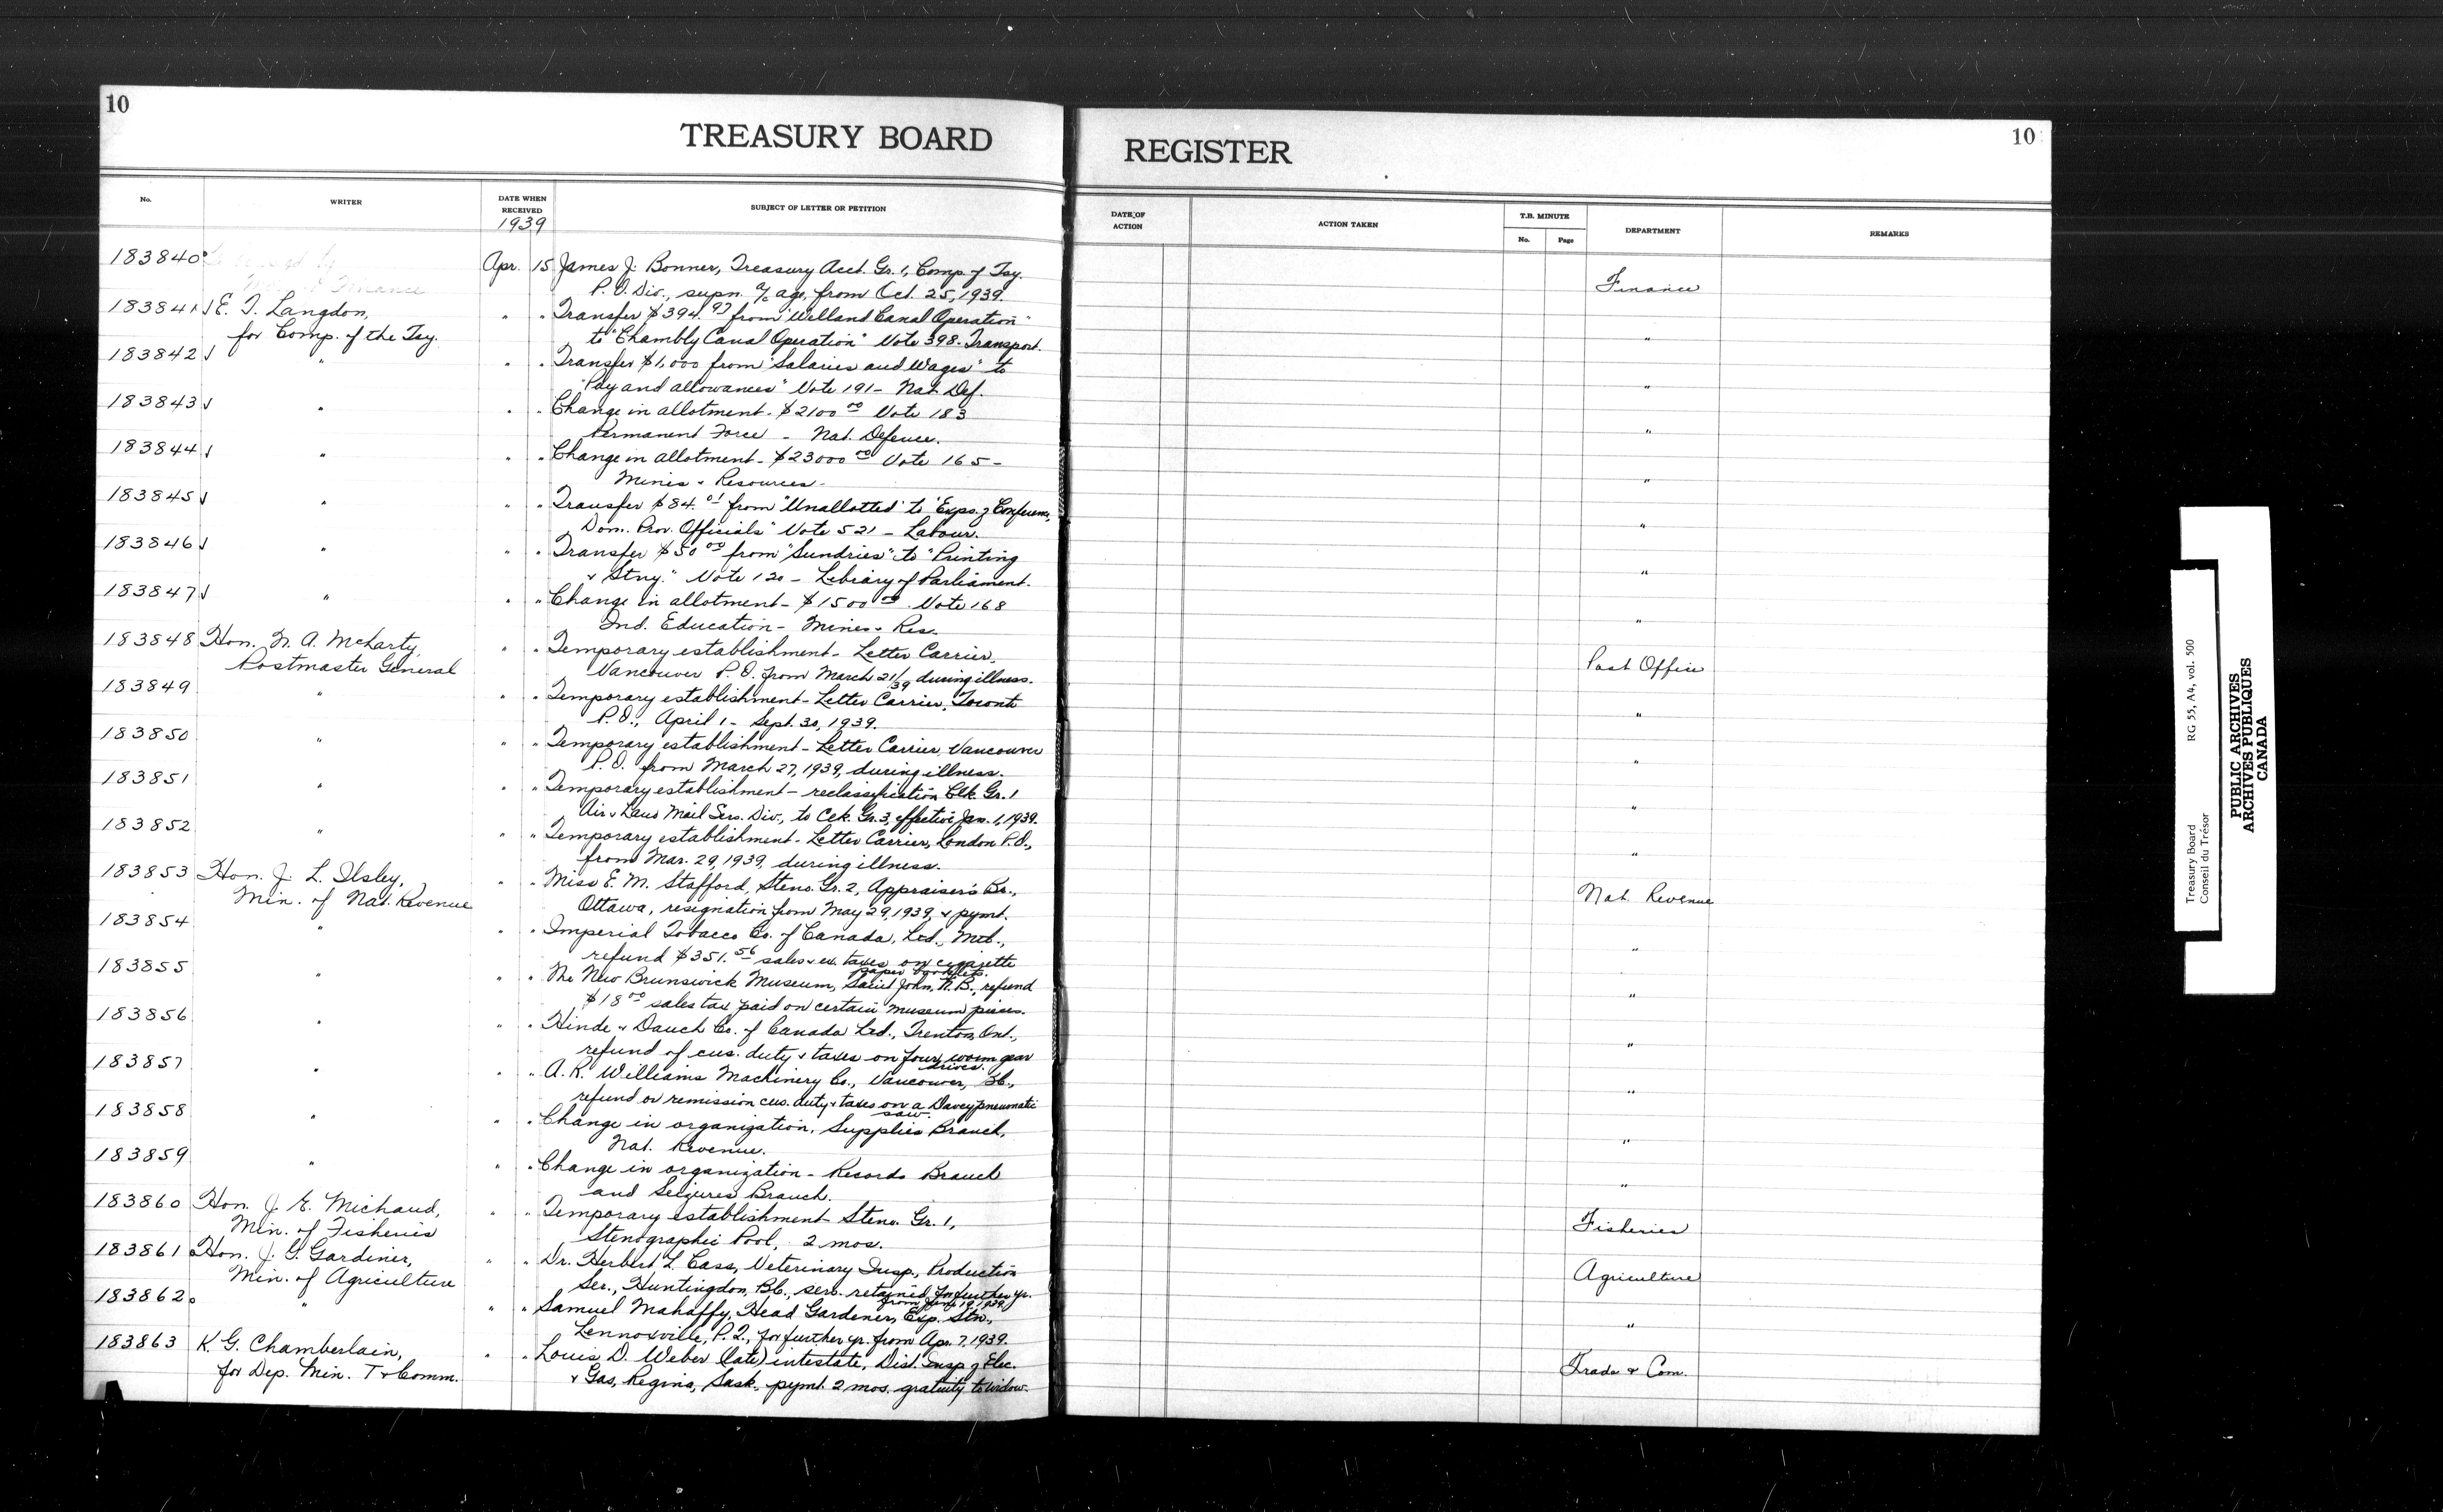 10
TREASURY BOARD
REGISTER
10
No.
WRITER
DATE WHEN RECEIVED
1939
SUBJECT OF LETTER OR PETITION
DATE OF ACTION
ACTION TAKEN
T.B. MINUTE
No.
Page
DEPARTMENT
REMARKS
183840 Apr. 15 James J. Bonner, Treasury Acct. Gr. 1, Comp. of Tsy. Finance
P.O. Div., supn. a/c age, from Oct. 25, 1939.
183841 √ E. T. Langdon, " " Transfer $394.97 from "Welland Canal Operation"
for Comp. of the Tsy. to "Chambly Canal Operation" Vote 398. Transport. "
183842 √ " " " Transfer $1,000 from "Salaries and Wages" to
"Pay and allowances" Vote 191 - Nat. Def. "
183843 √ " " " Change in allotment - $2100 00 Vote 183
Permanent Force - Nat. Defence. "
183844 √ " " " Change in allotment - $23000 00 Vote 165 -
Mines & Resources. "
183845 √ " " " Transfer $84.01 from "Unallotted" to "Exps. of Conference,
Dom. Prov. Officials" Vote 521 - Labour. "
183846 √ " " " Transfer $50 00 from "Sundries" to "Printing
& Stny." Vote 120 - Library of Parliament. "
183847 √ " " " Change in allotment - $1500 00. Vote 168
Ind. Education - Mines & Res. "
183848 Hon. N. A. McLarty, " " Temporary establishment - Letter Carrier,
Postmaster General Vancouver P.O. from March 21/39 during illness. Post Office
183849 " " " Temporary establishment - Letter Carrier, Toronto
P.O., April 1 - Sept. 30, 1939. "
183850 " " " Temporary establishment - Letter Carrier, Vancouver
P.O. from March 27, 1939, during illness. "
183851 " " " Temporary establishment - reclassification Clk. Gr. 1
Air & Land Mail Serv. Div., to Clk. Gr. 3, effective Jan. 1, 1939. "
183852 " " " Temporary establishment - Letter Carrier, London P.O.,
from Mar. 29, 1939, during illness. "
183853 Hon. J. L. Ilsley, " " Miss E. M. Stafford, Steno. Gr. 2, Appraiser's Br.,
Min. of Nat. Revenue Ottawa, resignation from May 29, 1939, & pymt. Nat. Revenue
183854 " " " Imperial Tobacco Co. of Canada, Ltd., Mtl.,
refund $351.56 sales & ex. taxes on cigarette "
paper booklets.
183855 " " " The New Brunswick Museum, Saint John, N.B., refund
$18 00 sales tax paid on certain museum pieces. "
183856 " " " Hinde & Dauch Co. of Canada Ltd., Trenton, Ont.,
refund of cus. duty & taxes on four worm gear "
drives.
183857 " " " A. R. Williams Machinery Co., Vancouver, B.C.,
refund or remission cus. duty & taxes on a Davey pneumatic "
saw.
183858 " " " Change in organization, Supplies Branch,
Nat. Revenue. "
183859 " " " Change in organization - Records Branch
and Seizures Branch. "
183860 Hon. J. E. Michaud, " " Temporary establishment Steno. Gr. 1,
Min. of Fisheries Stenographic Pool, 2 mos. Fisheries
183861 Hon. J. G. Gardiner, " " Dr. Herbert L. Cass, Veterinary Insp., Production
Min. of Agriculture Ser., Huntingdon, B.C., serv. retained for further yr. Agriculture
183862 " " " Samuel Mahaffy, Head Gardener, Exp. Stn.,
Lennoxville, P.Q., for further yr. from Apr. 7, 1939. "
183863 K. G. Chamberlain, " " Louis D. Weber (late) intestate, Dist. Insp. of Elec.
for Dep. Min. T & Comm. & Gas, Regina, Sask. pymt. 2 mos. gratuity to widow. Trade & Com.
Treasury Board RG 55, A4, vol. 500
Conseil du Trésor
PUBLIC ARCHIVES
ARCHIVES PUBLIQUES
CANADA